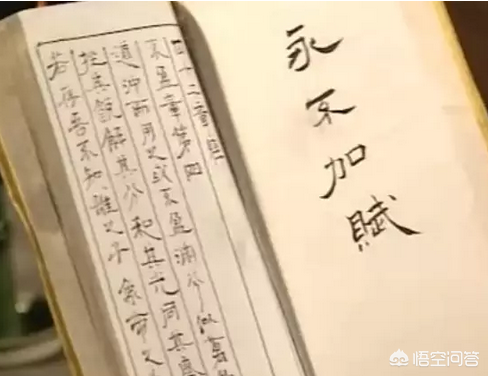 永不加賦
四十二章經
不盈章第四
道沖而用之或不盈淵兮似萬
挫其銳解其分和其光同其塵
若存吾不知誰之子 象帝之
悟空问答